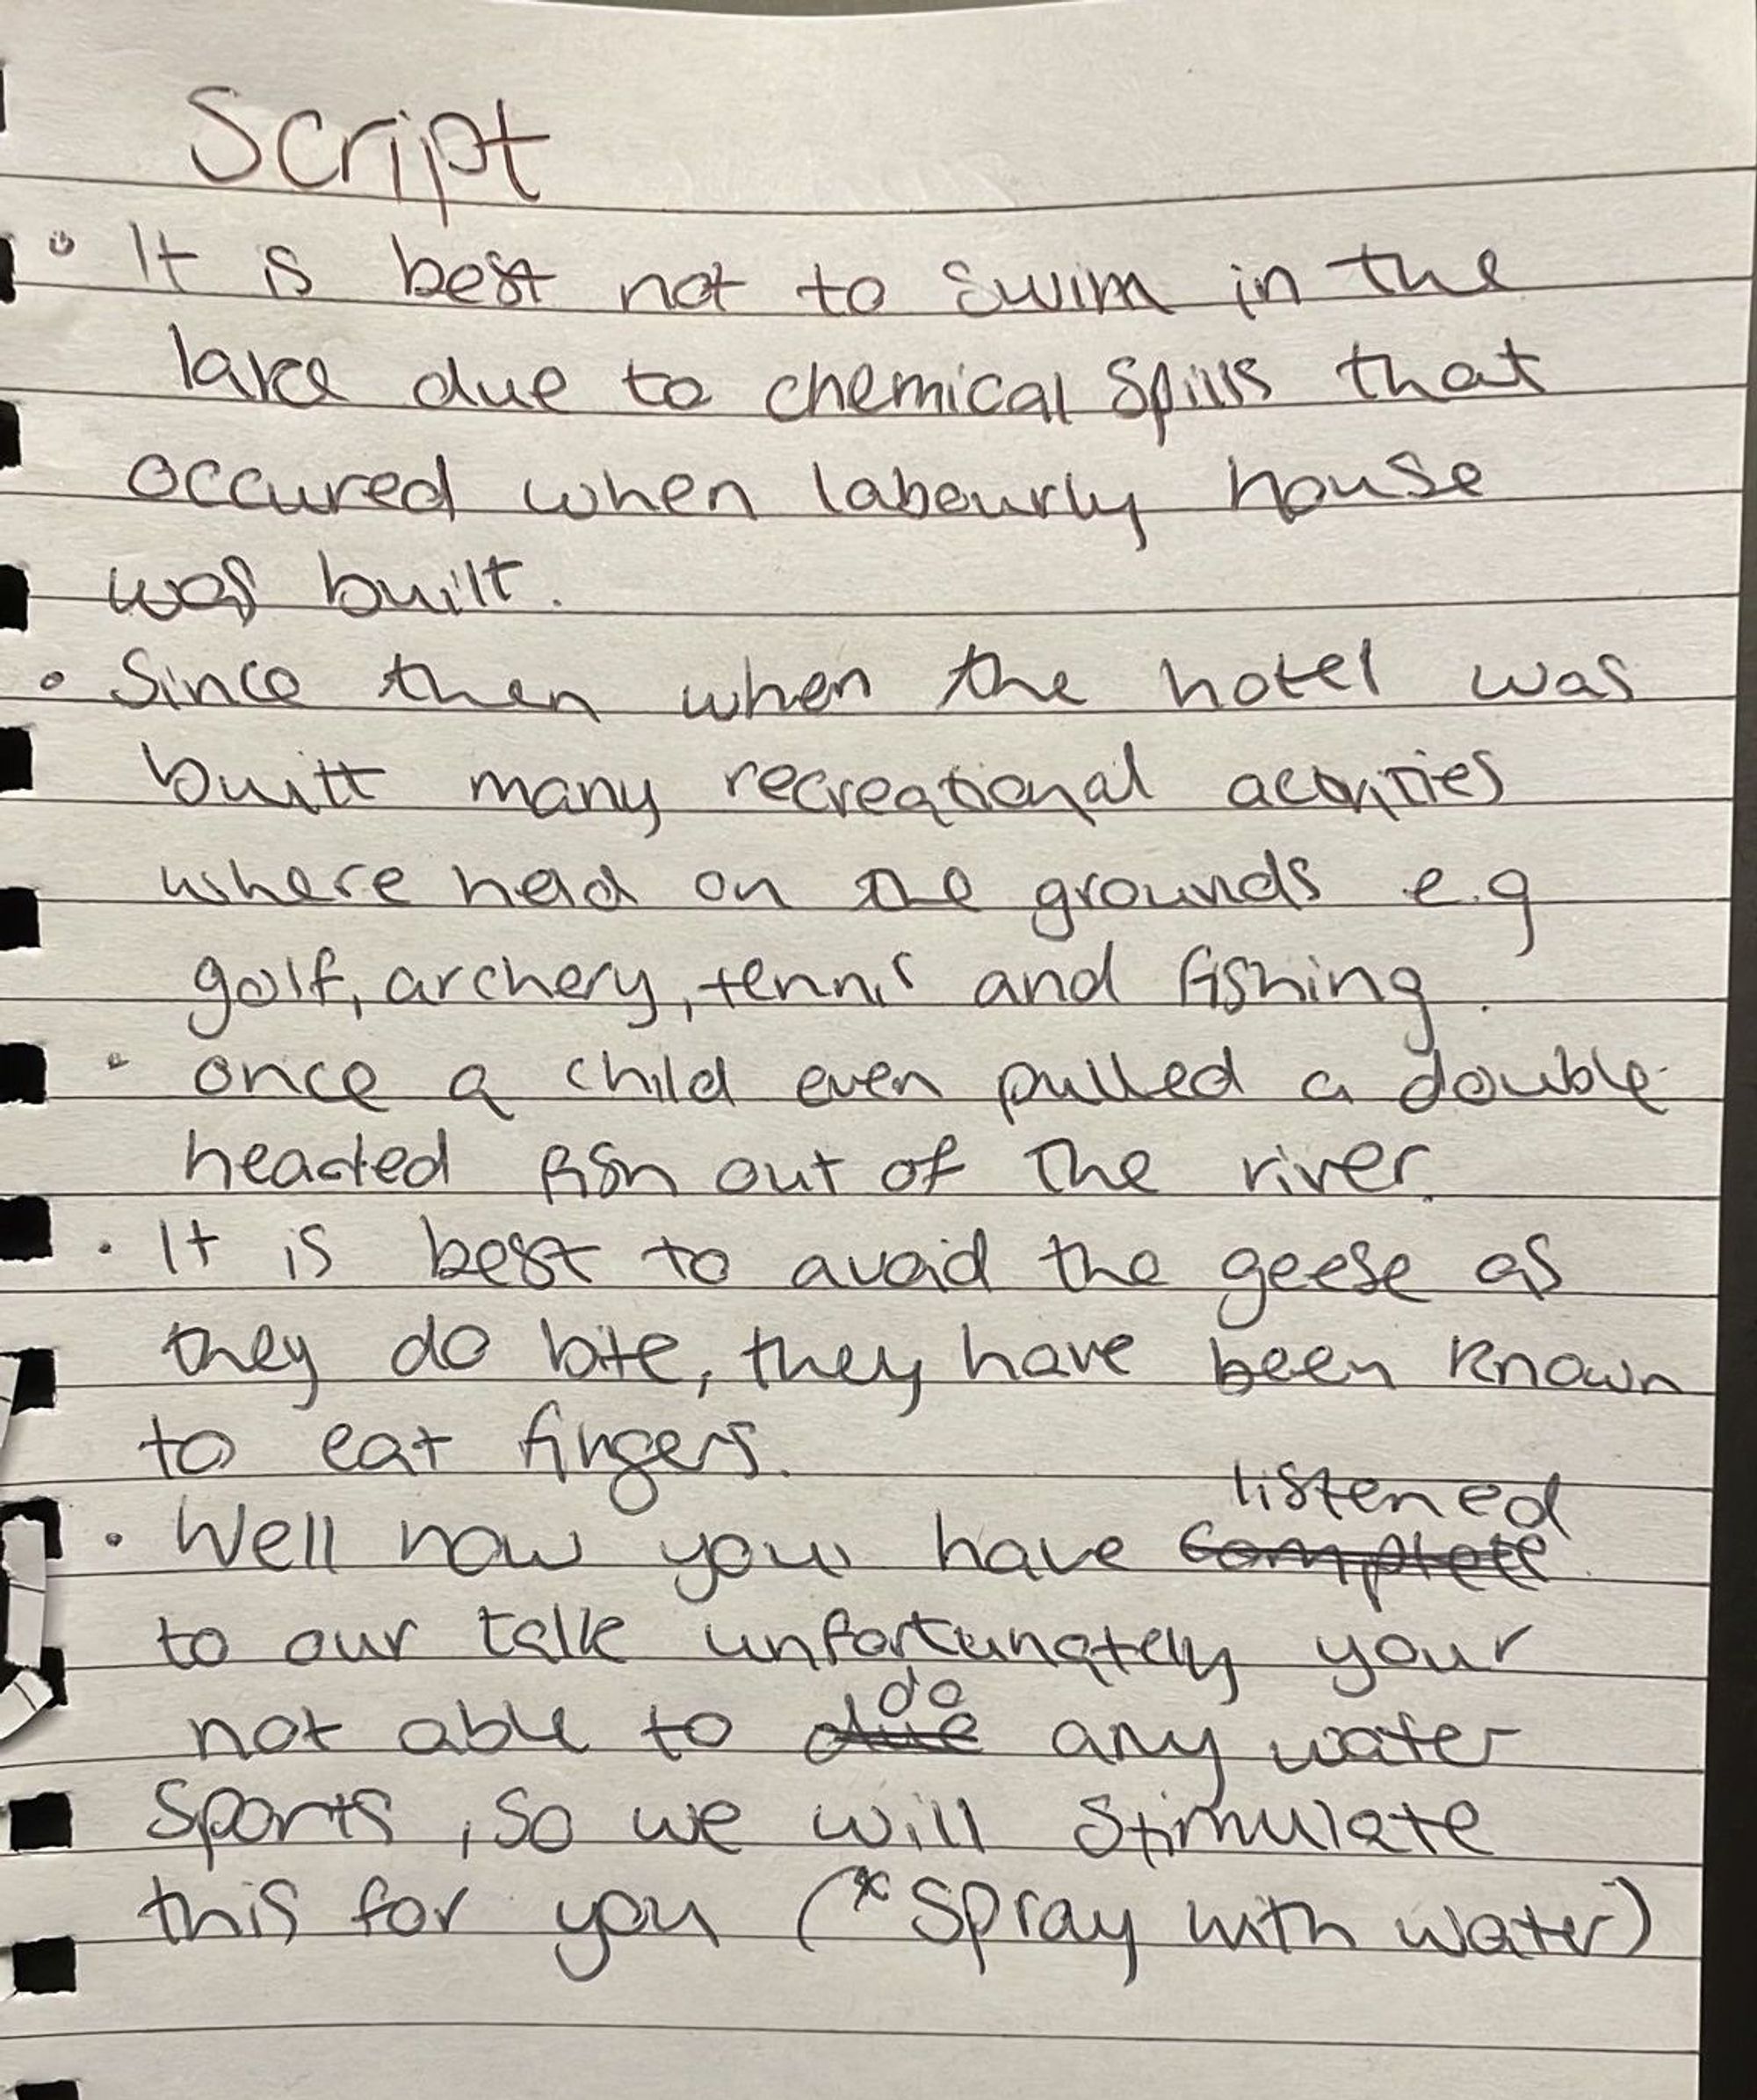 Script
• It is best not to swim in the
lake due to chemical spills that
occured when labourly house
was built.
• Since then when the hotel was
built many recreational activities
where held on the grounds e.g
golf, archery, tennis and fishing.
• once a child even pulled a double
headed fish out of the river.
• It is best to avoid the geese as
they do bite, they have been known
to eat fingers.
listened
• Well now you have ~~complete~~
to our talk unfortunately your
do
not able to ~~due~~ any water
sports, so we will stimulate
this for you (*Spray with water)